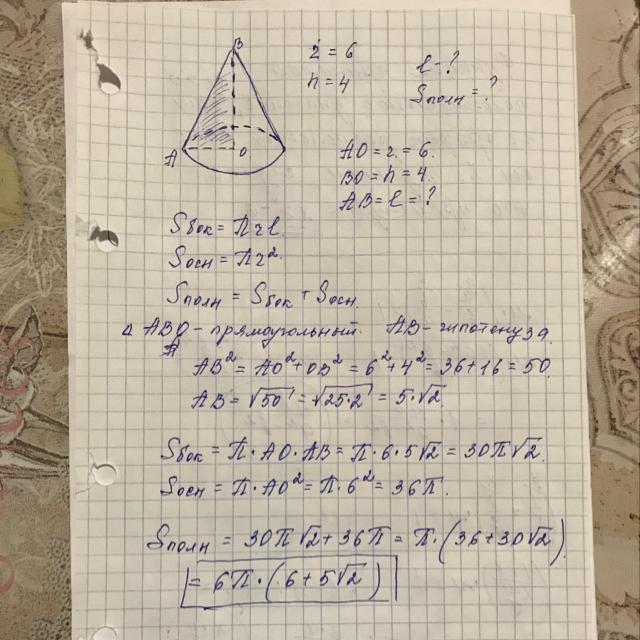 B
r = 6
h = 4
l - ?
Sполн = ?
A
O
AO = r = 6.
BO = h = 4.
AB = l = ?
Sбок = πrl.
Sосн = πr²
Sполн = Sбок + Sосн
△ ABO - прямоугольный. AB - гипотенуза
AB² = AO² + OB² = 6² + 4² = 36 + 16 = 50
AB = √50 = √25·2 = 5·√2.
Sбок = π·AO·AB = π·6·5√2 = 30π√2.
Sосн = π·AO² = π·6² = 36π.
Sполн = 30π√2 + 36π = π·(36 + 30√2)
= 6π·(6 + 5√2)